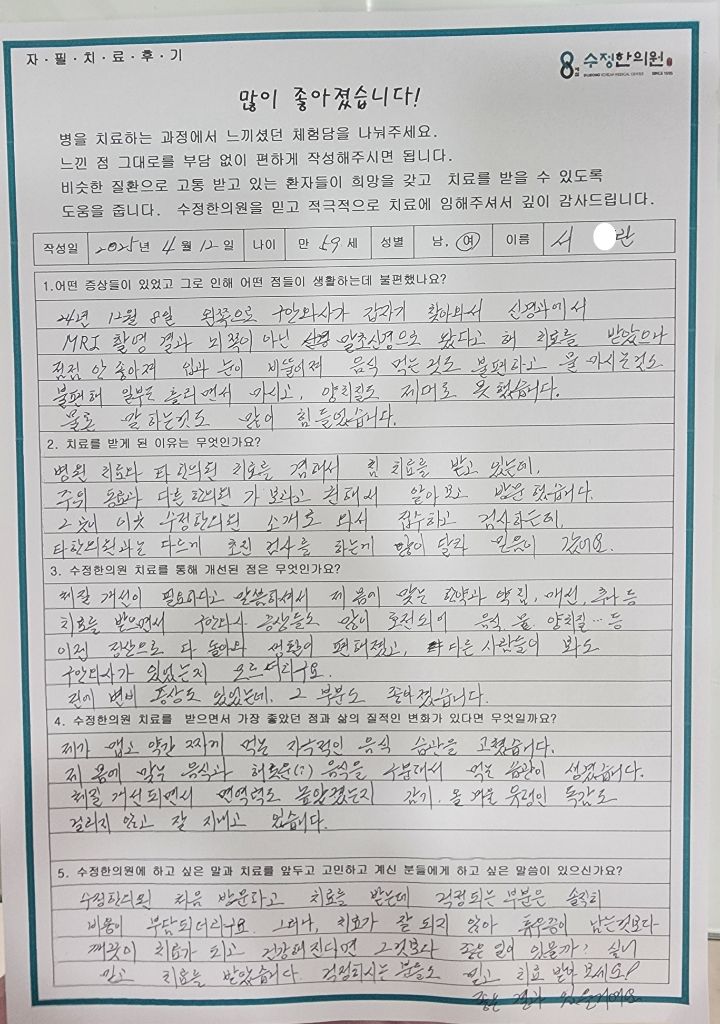 자·필·치·료·후·기
수정한의원
SINCE 1995
많이 좋아졌습니다!
병을 치료하는 과정에서 느끼셨던 체험담을 나눠주세요.
느낀 점 그대로를 부담 없이 편하게 작성해주시면 됩니다.
비슷한 질환으로 고통 받고 있는 환자들이 희망을 갖고 치료를 받을 수 있도록
도움을 줍니다. 수정한의원을 믿고 적극적으로 치료에 임해주셔서 깊이 감사드립니다.
작성일 2025년 4월 12일 나이 만 59세 성별 남, 여 이름 서 란
1.어떤 증상들이 있었고 그로 인해 어떤 점들이 생활하는데 불편했나요?
24년 12월 8일 왼쪽으로 구안와사가 갑자기 찾아와서 신경과에서
MRI 촬영 결과 뇌쪽이 아닌 말초신경으로 왔다고 해 치료를 받았으나
점점 안 좋아져 입과 눈이 비뚤어져 음식 먹는 것도 불편하고 물 마시는것도
불편해 일부는 흘리면서 마시고, 양치질도 제대로 못했습니다.
물론 말하는것도 많이 힘들었습니다.
2. 치료를 받게 된 이유는 무엇인가요?
병원 치료와 타 한의원 치료를 겸해서 침 치료를 받고 있는데,
주위 동료과 다른 한의원 가보라고 권해서 알아보고 방문 했습니다.
그 곳이 이곳 수정한의원 소개로 와서 접수하고 검사하는데,
타한의원과는 다르게 초진 검사를 하는게 많이 달라 믿음이 갔어요.
3. 수정한의원 치료를 통해 개선된 점은 무엇인가요?
체질 개선이 필요하다고 말씀하셔서 제 몸에 맞는 한약과 약침, 매선, 추나 등
치료를 받으면서 구안와사 증상들도 많이 호전되어 음식, 물, 양치질… 등
이젠 정상으로 다 돌아와 생활이 편해졌고, 다른 사람들이 봐도
구안와사가 있었는지 모르더라구요.
전에 변비 증상도 있었는데, 그 부분도 좋아졌습니다.
4. 수정한의원 치료를 받으면서 가장 좋았던 점과 삶의 질적인 변화가 있다면 무엇일까요?
제가 맵고 약간 짜게 먹는 자극적인 음식 습관을 고쳤습니다.
제 몸에 맞는 음식과 해로운(:) 음식을 구분해서 먹는 습관이 생겼습니다.
체질 개선되면서 면역력도 높았졌는지 감기, 올 겨울 유행인 독감도
걸리지 않고 잘 지내고 있습니다.
5. 수정한의원에 하고 싶은 말과 치료를 앞두고 고민하고 계신 분들에게 하고 싶은 말씀이 있으신가요?
수정한의원 처음 방문하고 치료를 받는데 걱정되는 부분은 솔직히
비용이 부담되더라구요. 그러나, 치료가 잘 되지 않아 후유증이 남는것보다
깨끗이 치료가 되고 건강해진다면 그것보다 좋은 일이 있을까? 싶어
믿고 치료를 받았습니다. 걱정하시는 분들도 믿고 치료 받아 보세요!
좋은 결과 있을거예요